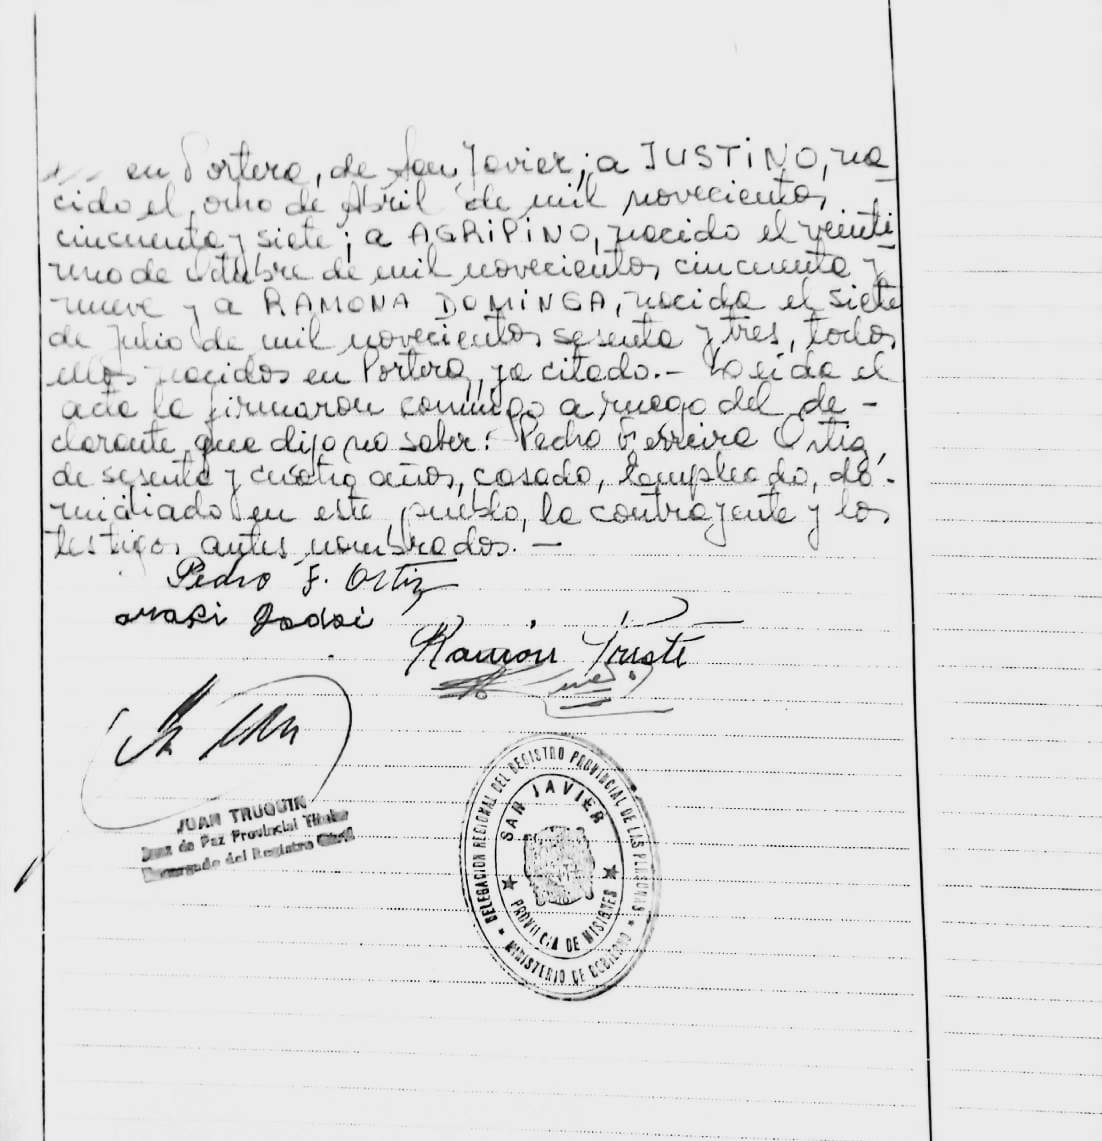 en Portera, de San Javier; a JUSTINO, na-
cido el ocho de Abril de mil novecientos
cincuenta y siete; a AGRIPINO, nacido el veinti-
uno de Octubre de mil novecientos cincuenta y
nueve y a RAMONA DOMINGA, nacida el siete
de Julio de mil novecientos sesenta y tres, todos
ellos nacidos en Portera, ya citado.- Leida el
acta la firmaron conmigo a ruego del de-
clarante, que dijo no saber: Pedro Ferreira Ortiz,
de sesenta y cuatro años, casado, Empleado, do-
miciliado en este pueblo, la contrayente y los
testigos antes nombrados.-
Pedro F. Ortiz
Ramón
JUAN TRUQUIN
Juez de Paz Provincial Titular
Encargado del Registro Civil
DELEGACION REGIONAL DEL REGISTRO PROVINCIAL DE LAS PERSONAS
SAN JAVIER
PROVINCIA DE MISIONES
MINISTERIO DE GOBIERNO